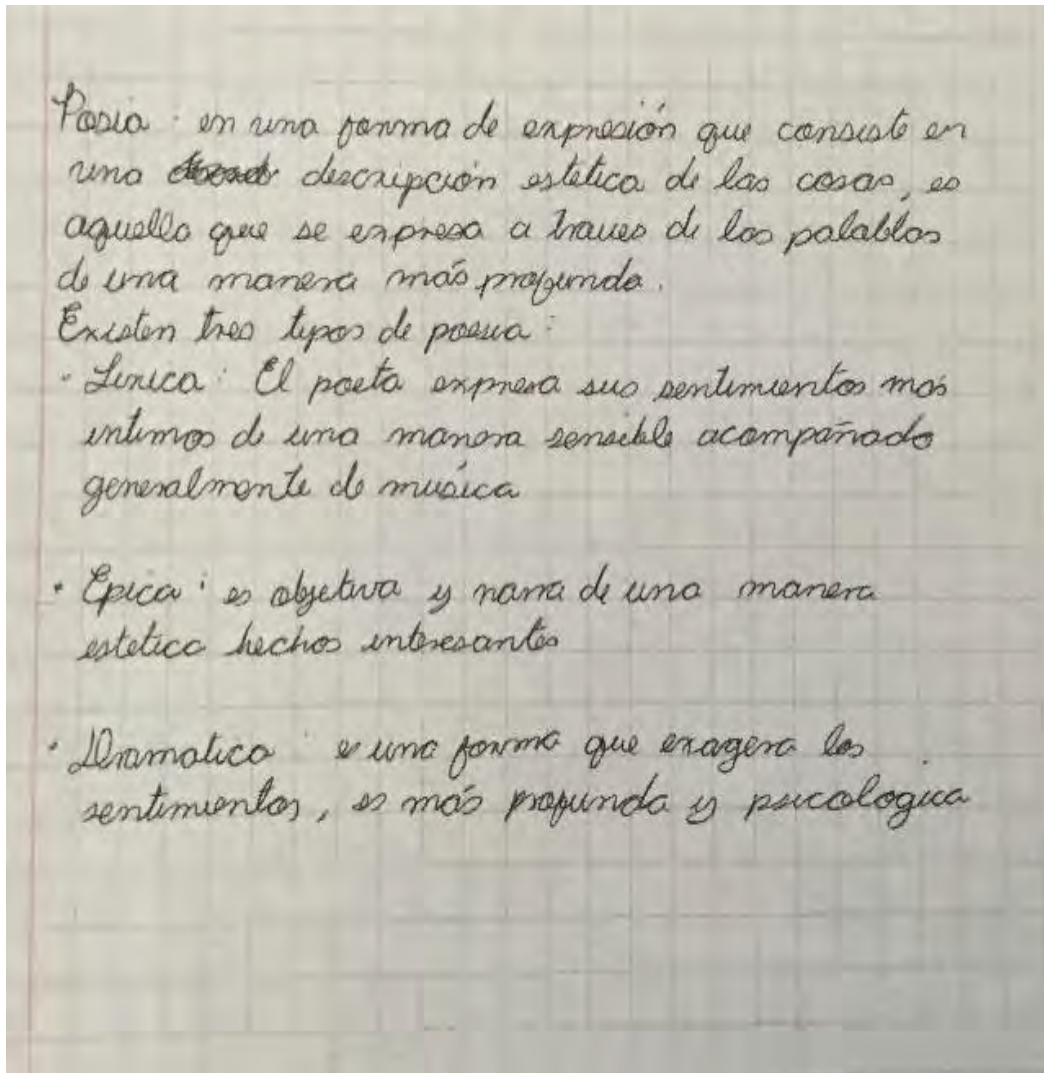 Posia : en una forma de expresión que consiste en
una descripción estetica de las cosas, es
aquello que se expresa a traves de las palablas
de una manera más profunda.
Existen tres tipos de poesia :
· Lirica : El poeta expresa sus sentimientos mas
intimos de una manera sensible acompañado
generalmente de música
· Epica : es objetiva y narra de una manera
estetica hechos interesantes
· Dramatica : e una forma que exagera los
sentimientos, es más profunda y psicologica